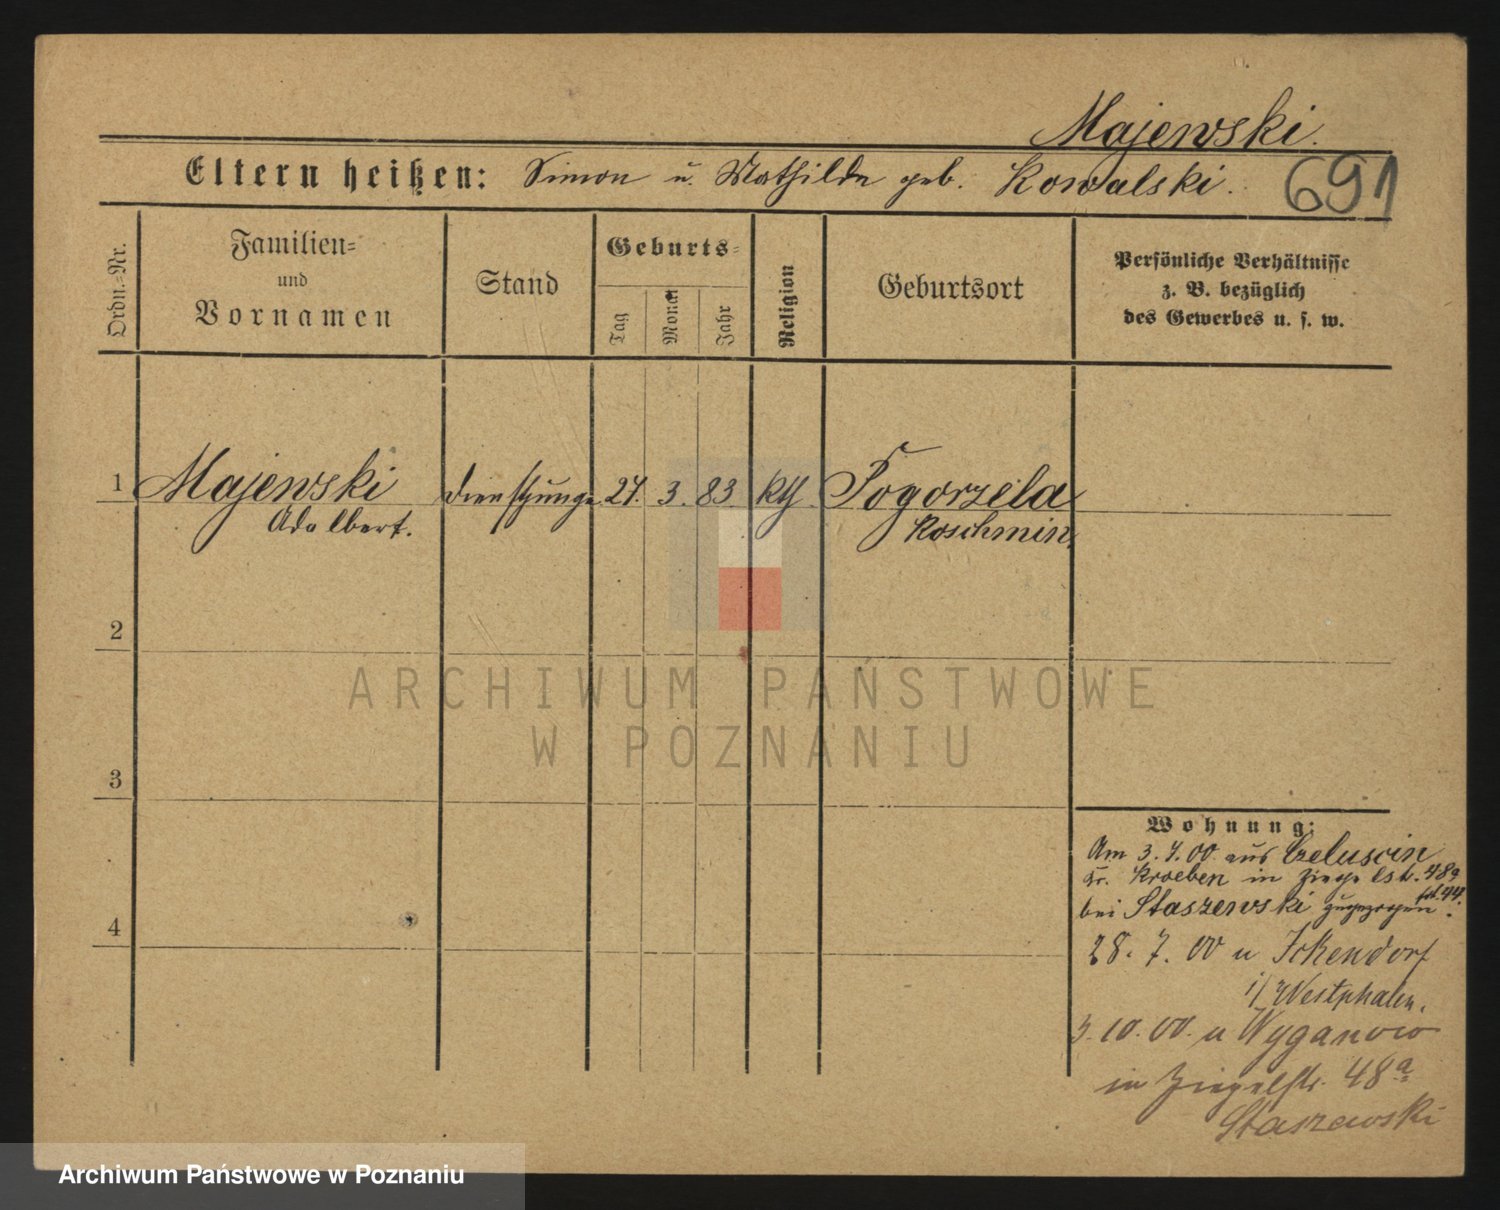 Majewski.
Eltern heißen: Simon u. Mathilde geb. Kowalski.
691
Ordn.-Nr.
Familien-
und
Vornamen
Stand
Geburts-
Tag
Monat
Jahr
Religion
Geburtsort
Persönliche Verhältnisse
z. B. bezüglich
des Gewerbes u. s. w.
1 Majewski Dienstjunge 3. 83. kth Pogorzela
Adalbert. Koschmin.
2
3
4
ARCHIWUM PAŃSTWOWE
W POZNANIU
Wohnung:
Am 3. 4. 00 aus Czeluscin
Kr. Kroeben in Ziegelstr. 48a
bei Staszewski zugezogen.
28. 7. 00 n Ickendorf
i/Westphalen.
3. 10. 00. n Wyganowo
in Ziegelstr. 48a
Staszewski
Archiwum Państwowe w Poznaniu